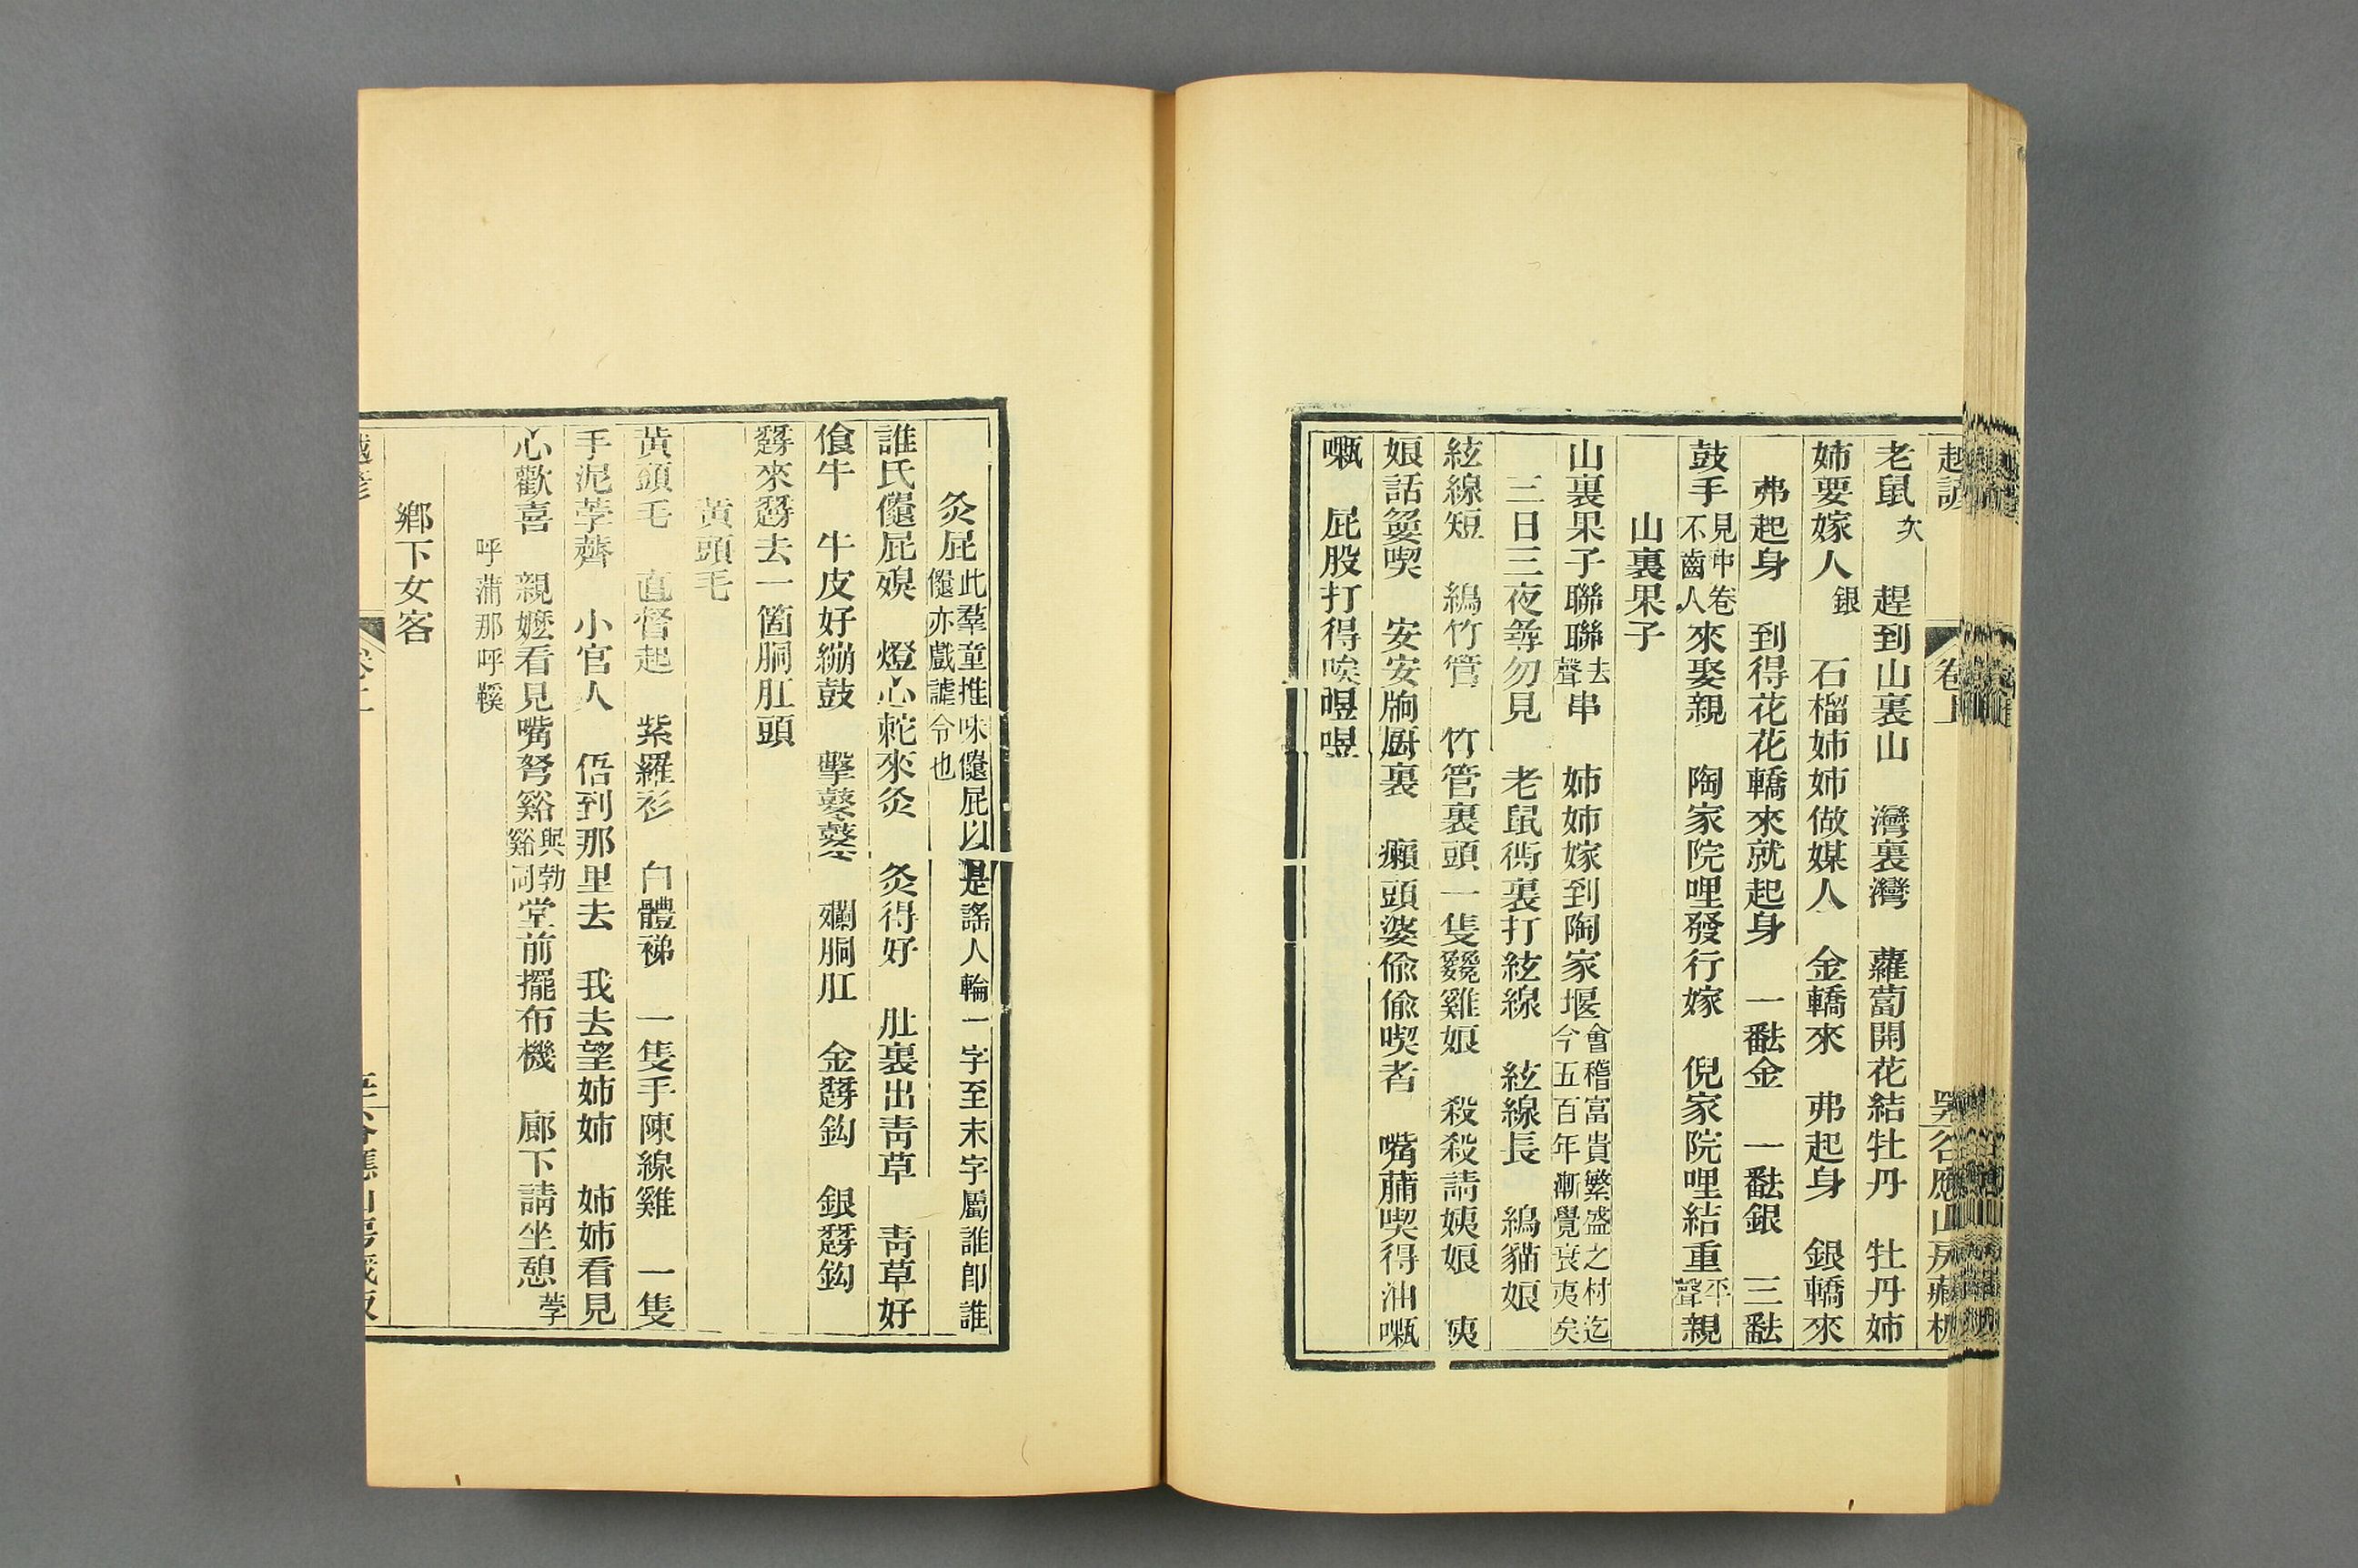 越諺 卷上 谷應山房藏板
老鼠 趕到山裏山 灣裏灣 蘿蔔開花結牡丹 牡丹姉
姉要嫁人 銀 石榴姉姉做媒人 金轎來 弗起身 銀轎來
弗起身 到得花花轎來就起身 一畚金 一畚銀 三畚
鼓手見中卷不齒人來娶親 陶家院哩發行嫁 倪家院哩結重平聲親
山裏果子
山裏果子聯聯去聲串 姉姉嫁到陶家堰會稽富貴繁盛之村迄今五百年漸覺衰夷矣
三日三夜尋勿見 老鼠衖裏打絃線 絃線長 綯貓娘
絃線短 綯竹管 竹管裏頭一隻雞娘 殺殺請姨娘 姨
娘話喫 安安廚裏 癩頭婆偸偸喫者 嘴喫得油嘅
嘅 屁股打得唉
灸屁此羣童推味屁以是謠人輪一字至末字屬誰卽誰亦戲謔令也
誰氏屁 燈心來灸 灸得好 肚裏出靑草 靑草好
飡牛 牛皮好繃鼓 擊鼕鼕 爛胴肛 金鈎 銀鈎
來去一箇胴肛頭
黃頭毛
黃頭毛 直督起 紫羅衫 白體裼 一隻手陳線雞 一隻
手泥荸薺 小官人 偣到那里去 我去望姉姉 姉姉看見
心歡喜 親嬤看見嘴弩谿與勃谿同堂前擺布機 廊下請坐憩荸
呼蒲那呼
鄕下女客
越諺 卷上 谷應山房藏板